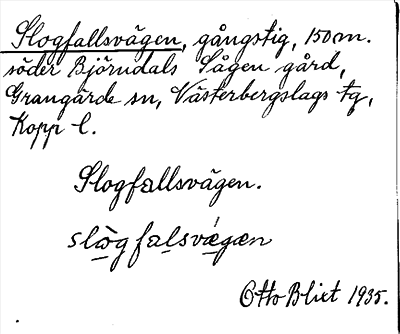 Slogfallsvägen, gångstig, 150 m.
söder Björndals Sågen gård,
Grangärde sn, Västerbergslags tg,
Kopp l.
Slogfallsvägen.
slògfalsvǽgæn
Otto Blixt 1935.